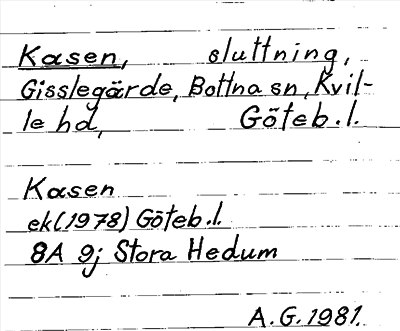 Kasen, sluttning,
Gisslegärde, Bottna sn, Kvil-
le hd, Göteb.l.
Kasen
ek(1978) Göteb.l.
8A 9j Stora Hedum
A.G.1981.